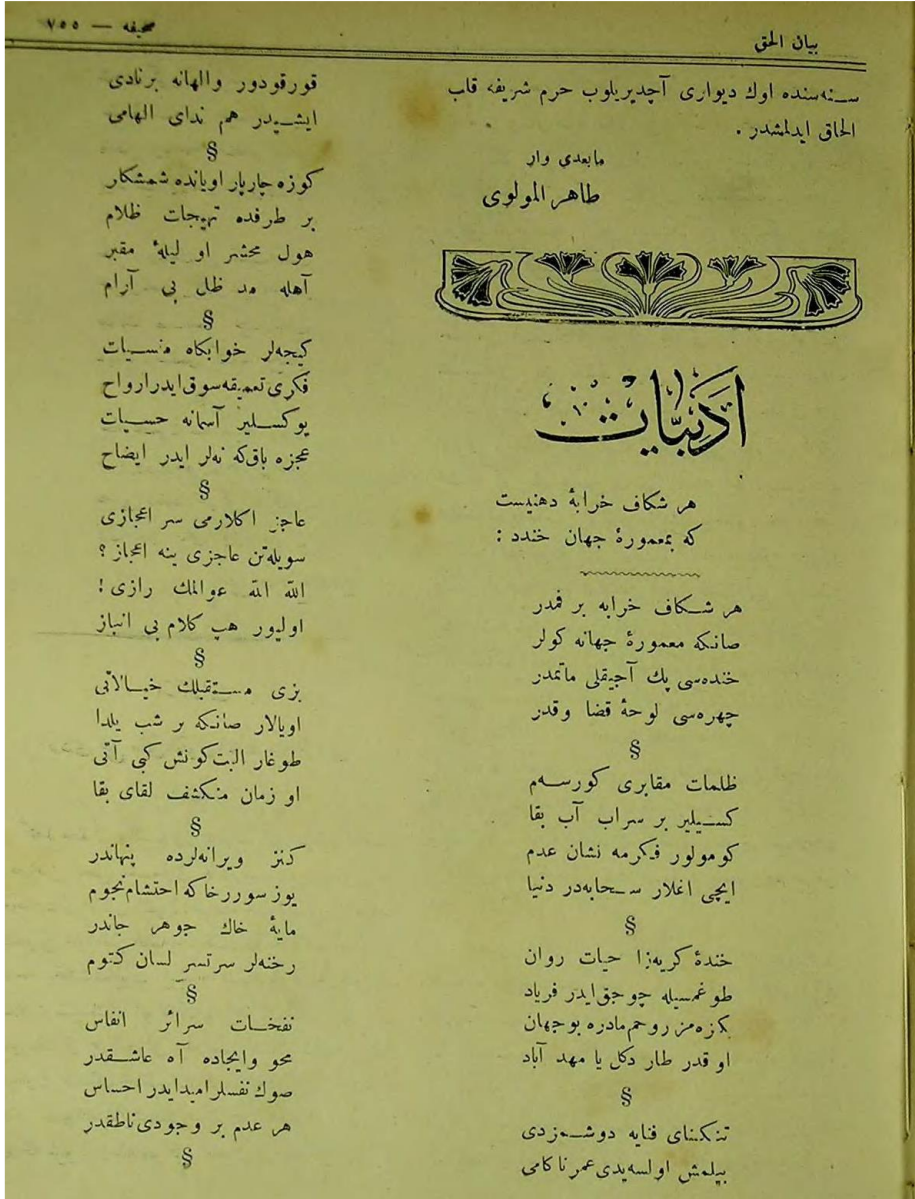 بيان الحق
صحيفه — ٧٥٥
سنه‌سنده اوك ديوارى آچديريلوب حرم شريفه قلب
الحاق ايدلمشدر .
مابعدى وار
طاهر المولوى
ادبيات
هر شكاف خرابهٔ دهنيست
كه بمعمورهٔ جهان خندد :
هر شكاف خرابه بر فمدر
صانكه معمورهٔ جهانه كولر
خنده‌سى پك آجيقلى ماتمدر
چهره‌سى لوحهٔ قضا وقدر
§
ظلمات مقابرى كورسه‌م
كسيلير بر سراب آب بقا
كومولور فكرمه نشان عدم
ايچى اغلار سحابه‌در دنيا
§
خندهٔ كريه‌زا حيات روان
طوغمسيله چوجق ايدر فرياد
بكزه‌مز روحم مادره بوجهان
او قدر طار دكل يا مهد آباد
§
تنكناى فنايه دوشمزدى
بيلمش اولسه‌يدى عمر ناكامى
قورقودور والهانه برنادى
ايشيدر هم نداى الهامى
§
كوزه چارپار اويانده شمشكار
بر طرفده تهيجات ظلام
هول محشر او ليلهٔ مقبر
آهله مد ظل بى آرام
§
كيجه‌لر خوابكاه منسيات
فكرى تعميقه سوق ايدر ارواح
يوكسلير آسمانه حسيات
عجزه باق كه نه‌لر ايدر ايضاح
§
عاجز اكلارمى سر اعجازى
سويله‌تن عاجزى ينه اعجاز ؟
الله الله عوالمك رازى !
اوليور هپ كلام بى انباز
§
بزى مستقبلك خيالاتى
اويالار صانكه بر شب يلدا
طوغار البت كونش كبى آتى
او زمان منكشف لقاى بقا
§
كنز ويرانه‌لرده پنهاندر
يوز سوررخاكه احتشام نجوم
مايهٔ خاك جوهر جاندر
رخنه‌لر سرتسر لسان كتوم
§
نفخات سرائر انفاس
محو وايجاده آه عاشقدر
صوك نفسلر اميدايدر احساس
هر عدم بر وجودى ناطقدر
§